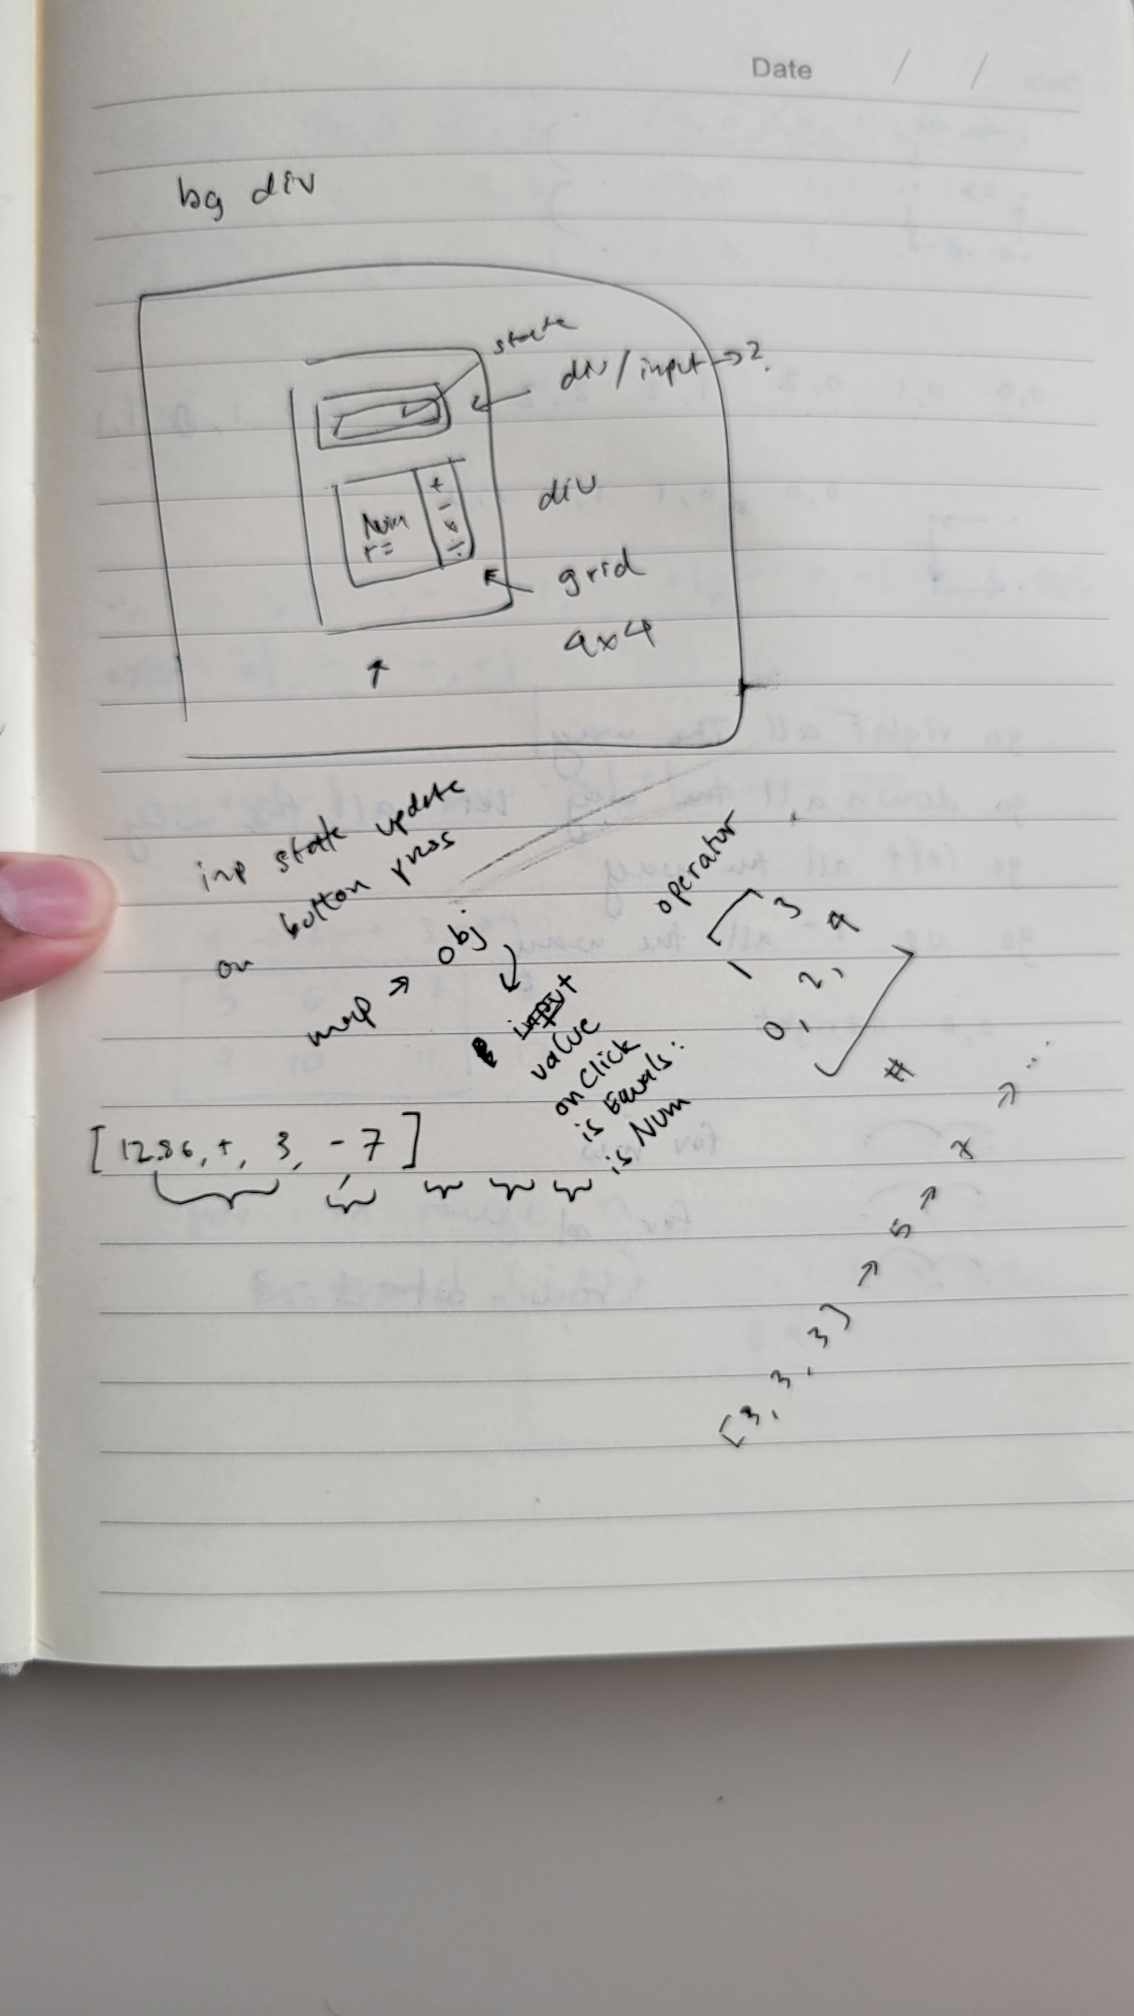 Date / /
bg div
state
div/input → ?
+
-
x
÷
Num
div
grid
4x4
inp state update
on button press
map → obj
input
value
onClick
is Equals:
is Num
operator
[1 3
0, 2, 4]
#
[1286, +, 3, - 7]
[3, 3, 3] → 5 → x → ...